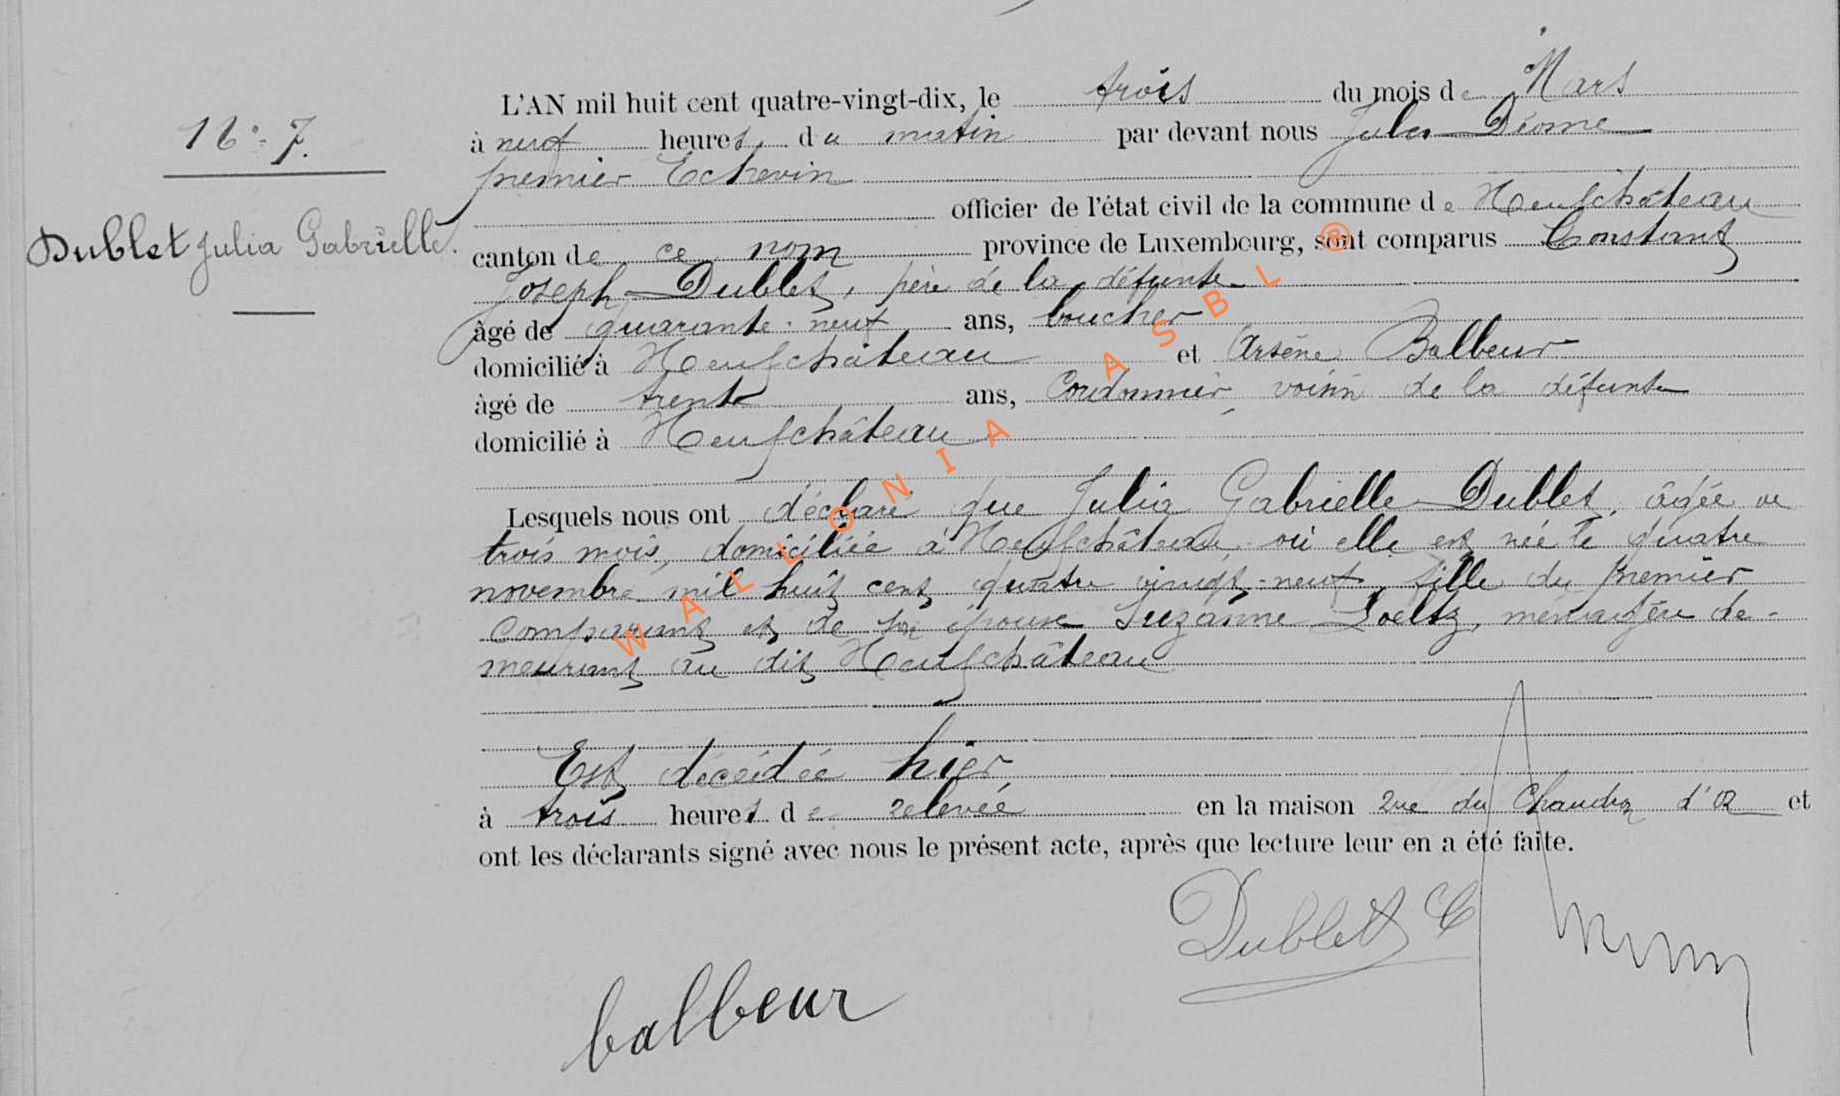 L'AN mil huit cent quatre-vingt-dix, le trois du mois de Mars
16 - 7.
à neuf heures du matin par devant nous Jules Déome
premier Echevin
officier de l'état civil de la commune de Neufchâteau
Dublet Julia Gabrielle.
canton de ce nom province de Luxembourg, sont comparus Constant
Joseph Dublet, père de la défunte
âgé de quarante-neuf ans, boucher
domicilié à Neufchâteau et Arsène Balbeur
âgé de trente ans, Cordonnier, voisin de la défunte
domicilié à Neufchâteau
Lesquels nous ont déclaré que Julia Gabrielle Dublet, âgée de
trois mois, domiciliée à Neufchâteau, où elle est née le quatre
novembre mil huit cent quatre vingt-neuf, fille du premier
comparant et de son épouse Suzanne Loeltz, ménagère de-
meurant au dit Neufchâteau
Est décédée hier
à trois heures de relevée en la maison rue du Chaudron d'Or et
ont les déclarants signé avec nous le présent acte, après que lecture leur en a été faite.
Dublet C
balbeur
WALLONIA ASBL ®